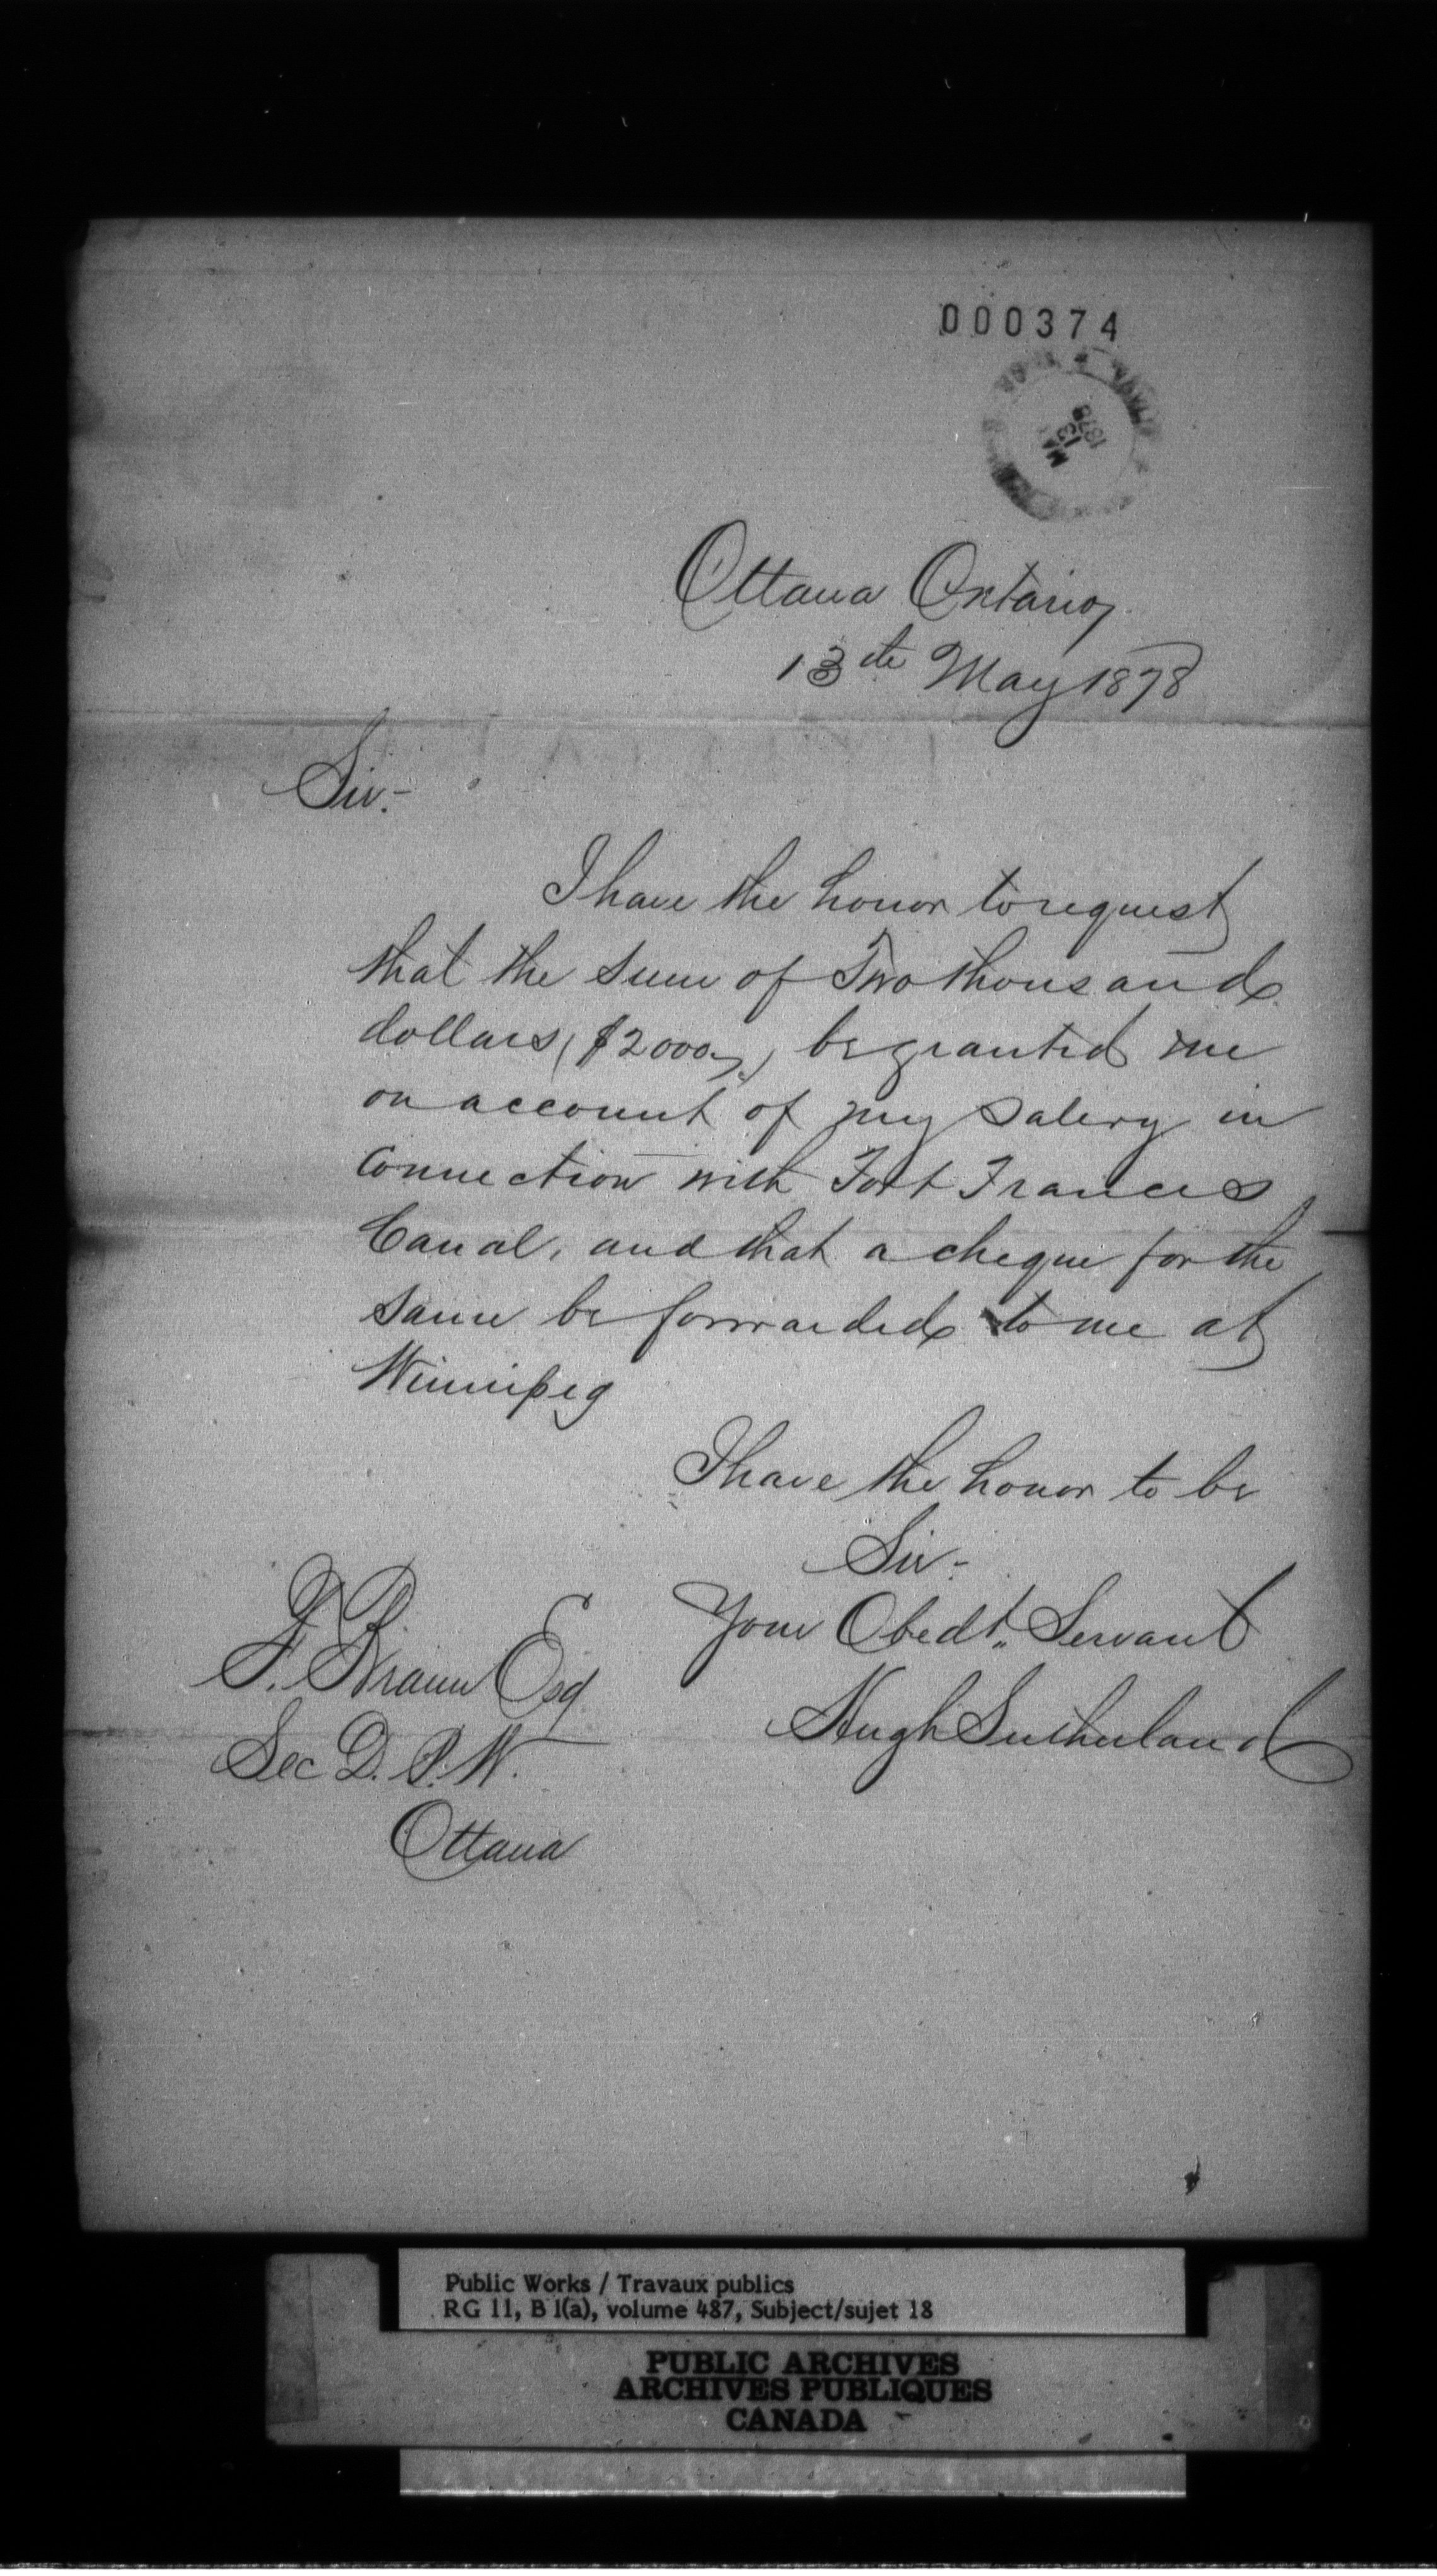 000374
MAY
13
1878
Ottawa Ontario,
13th May 1878
Sir:-
I have the honor to request
that the sum of Two thousand
dollars, ($2000.) be granted me
on account of my salery in
Connection with Fort Frances
Canal, and that a cheque for the
same be forwarded to me at
Winnipeg
I have the honor to be
Sir-
Your Obedt. Servant
Hugh Sutherland
F. Braun Esq
Sec D. P. W.
Ottawa
Public Works / Travaux publics
RG 11, B 1(a), volume 487, Subject/sujet 18
PUBLIC ARCHIVES
ARCHIVES PUBLIQUES
CANADA